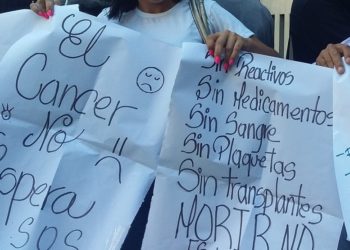 El
Cancer
No
spera
SOS
Sin Reactivos
Sin Medicamentos
Sin Sangre
Sin Plaquetas
Sin transplantes
MORIR NO